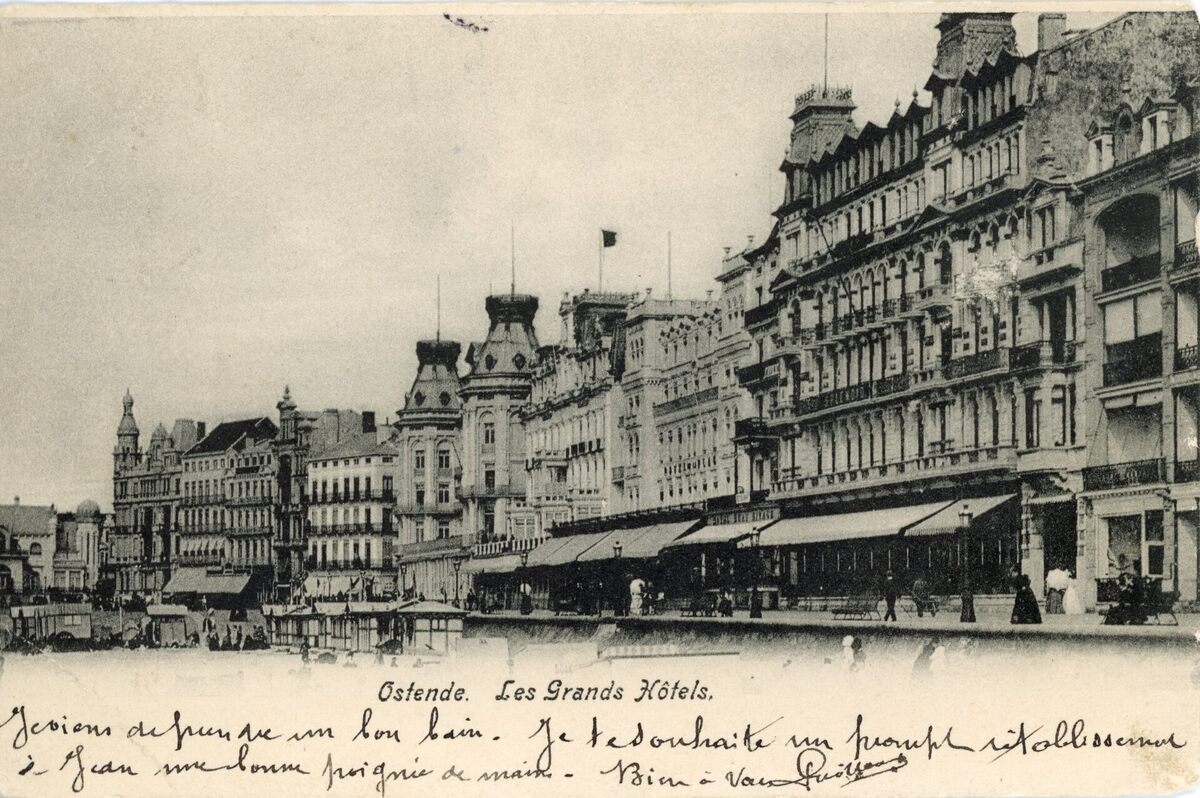 Ostende. Les Grands Hôtels.
Je viens de prendre un bon bain. Je te souhaite un prompt rétablissement
à Jean une bonne poignée de main. Bien à vous